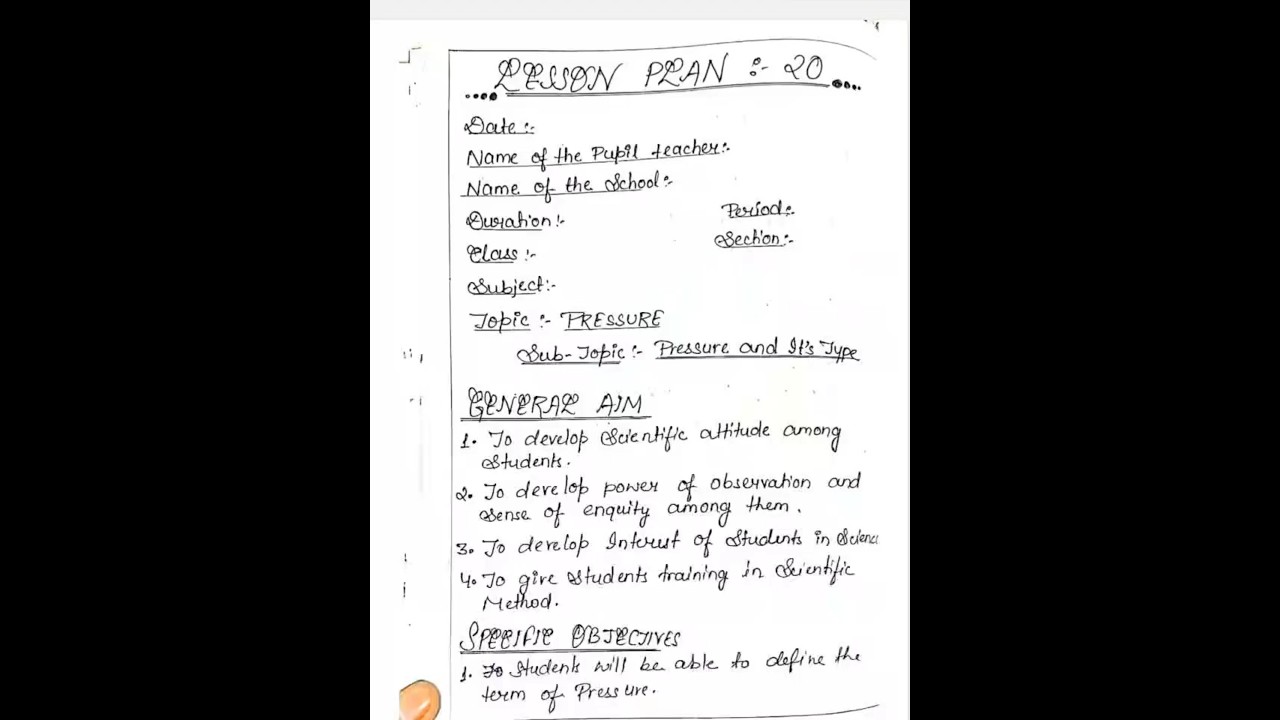 LESSON PLAN :- 20
Date :-
Name of the Pupil teacher:-
Name of the School:-
Duration:- Period:-
Section:-
Class :-
Subject:-
Topic :- PRESSURE
Sub-Topic :- Pressure and It's Type
GENERAL AIM
1. To develop Scientific attitude among
Students.
2. To develop power of observation and
sense of enquity among them.
3. To develop Interest of Students in Science
4. To give students training in Scientific
Method.
SPECIFIC OBJECTIVES
1. To Students will be able to define the
term of Pressure.